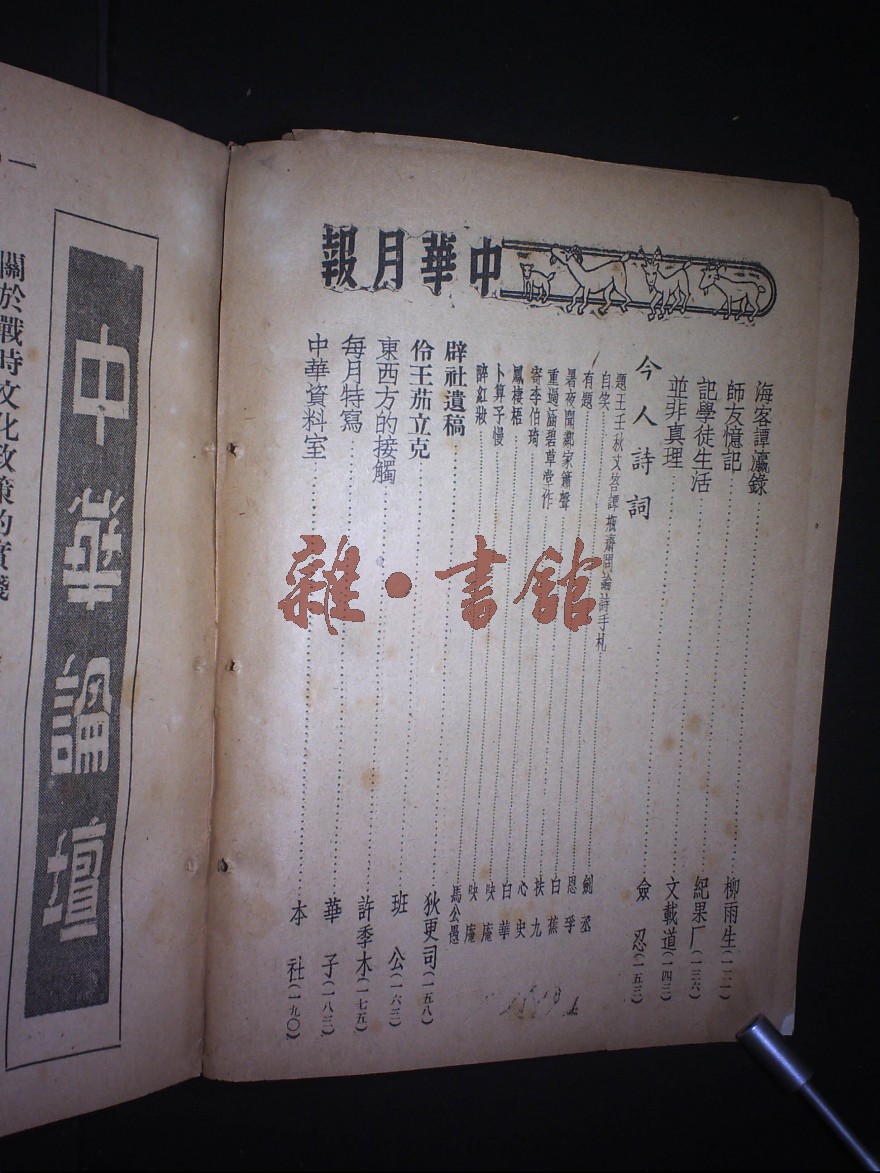 中華月報
海客譚瀛錄 柳雨生(一二一)
師友憶記 紀果厂(一三六)
記學徒生活 文載道(一四三)
並非真理 僉忍(一五三)
今人詩詞
題王壬秋文咨譚瓶齋問論詩手札 劍丞
自笑 恩孚
有題 白蕉
暑夜聞鄰家簫聲 扶九
重過涵碧草堂作 心史
寄李伯琦 白華
鳳棲梧 吷庵
卜算子慢 吷庵
醉紅妝 馬公愚
辟社遺稿 狄更司(一五八)
伶王茄立克 班公(一六三)
東西方的接觸 許季木(一七五)
每月特寫 華子(一八三)
中華資料室 本社(一九〇)
雜·書館
中華論壇
關於戰時文化政策的實踐